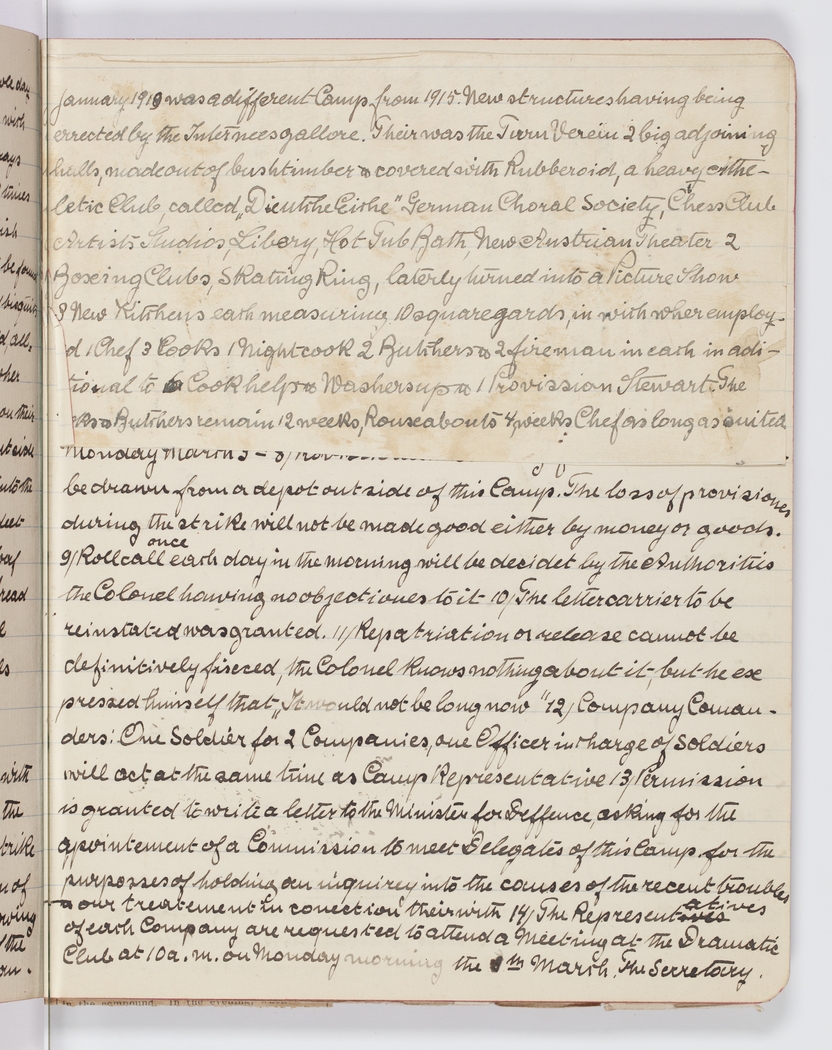 January 1919 was a different Camp from 1915. New structures having being
errected by the Internees gallore. Their was the Turn Verein 2 big adjoining
halls, made out of bushtimber & covered with Rubberoid, a heavy athe-
letic Club, called "Dieutshe Eishe" German Choral Society, Chess Club
Artists Studios, Libery, Hot Tub Bath, New Austrian Theater 2
Boxeing Clubs, Skating Ring, laterly turned into a Picture Show
3 New Kitchens each measuring 10 square gards, in with wher employ-
d 1 Chef 3 Cooks 1 Nightcook 2 Butchers & 2 fireman in each in adi-
tional to 6 Cookhelps & Washersup & 1 Provission Stewart. The
ks & Butchers remain 12 weeks, Rouseabouts 4 weeks Chef as long as suited
Monday March 3 - 8/
be drawn from a depot outside of this Camp. The loss of provisiones
during the strike will not be made good either by money or goods.
9/ Rollcall once each day in the morning will be decidet by the Authoritiis
the Colonel hawing no objectiones to it 10/ The lettercarrier to be
reinstated was granted. 11/ Repatriation or release cannot be
definitively fixced, the Colonel knows nothing about it, but he ex
pressed himself that "It would not be long now" 12/ Company Coman-
ders: One Soldier for 2 Companies, one Officer in charge of Soldiers
will act at the same time as Camp Representative 13/ Permission
is granted to write a letter to the Minister for Deffence, asking for the
apointement of a Commission to meet Delegates of this Camp for the
purposses of holding an inquirey into the causes of the recent troubles
& our treatement in conection their with 14/ The Representatives
of each Company are requested to attend a Meeting at the Dramatic
Club at 10 a.m. on Monday morning the th March. The Secretary.